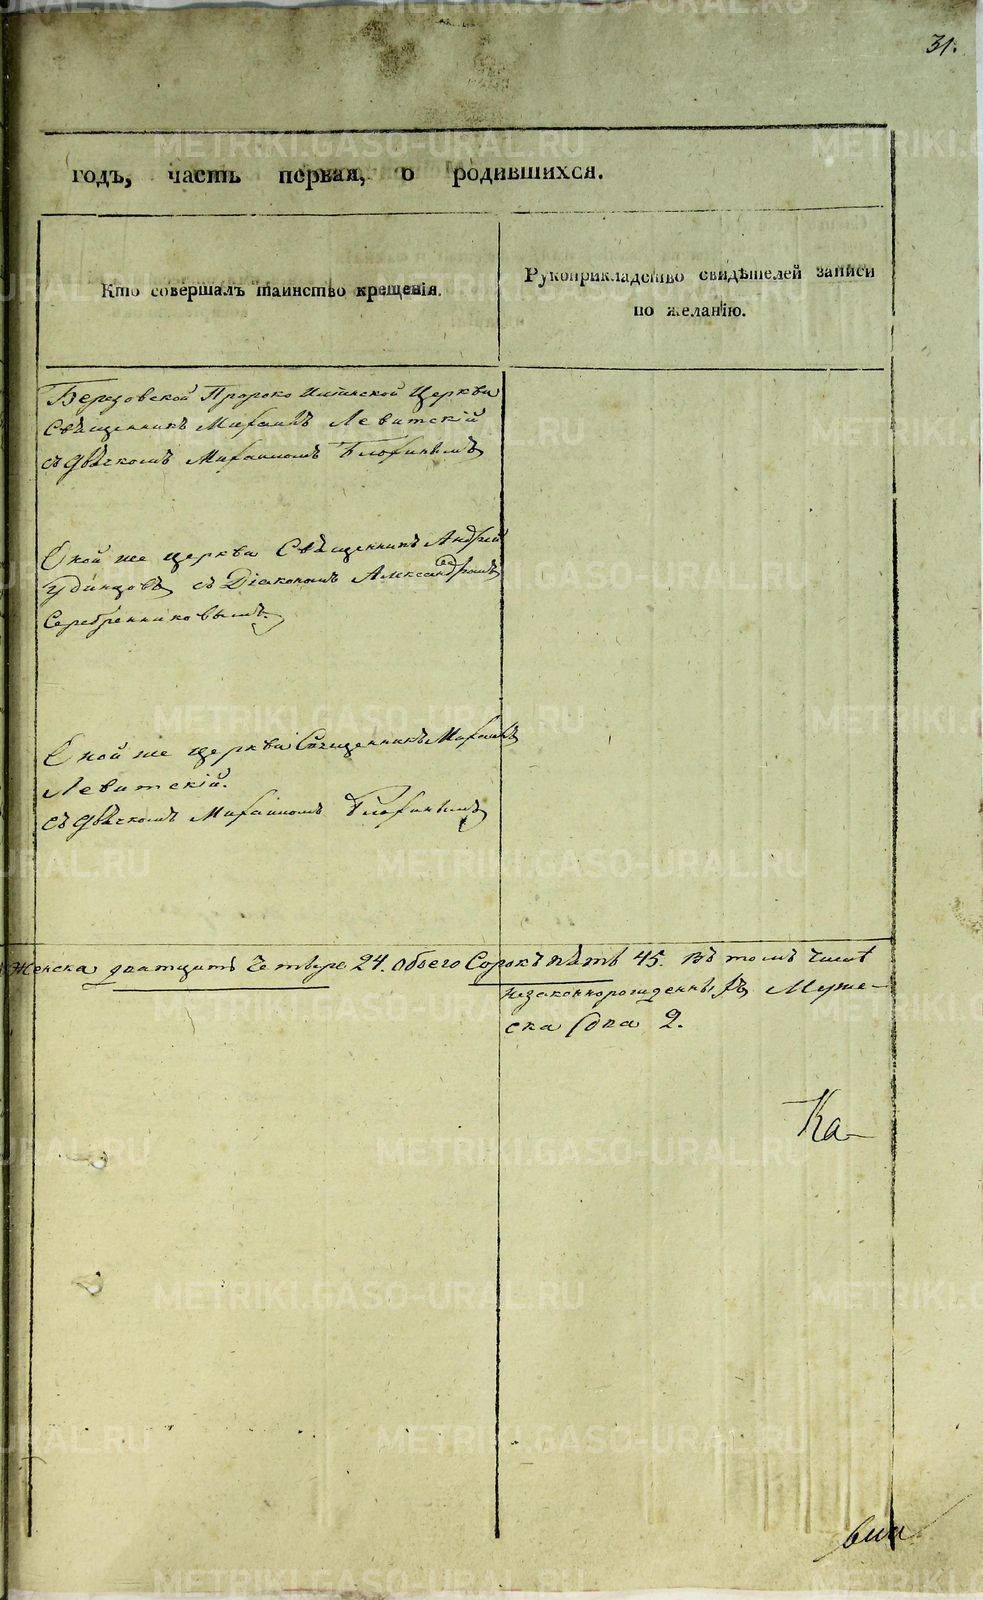 31.
годъ, часть первая, о родившихся.
Кто совершалъ таинство крещенія.
Рукоприкладство свидѣтелей записи
по желанію.
Березовской Пророко Ильинской Церкви
Священникъ Михаилъ Левитскій
съ дьячкомъ Михаиломъ
Оной же церкви Священникъ Андрей
Удинцовъ съ Діакономъ Александромъ
Серебренниковымъ.
Оной же церкви Священникъ Михаилъ
Левитскій.
съ дьячкомъ Михаиломъ
Женска дватцать четыре 24. обоего Сорокъ пять 45. въ томъ числѣ
незаконнорожденныхъ Муже-
ска два 2.
Ка-
METRIKI.GASO-URAL.RU